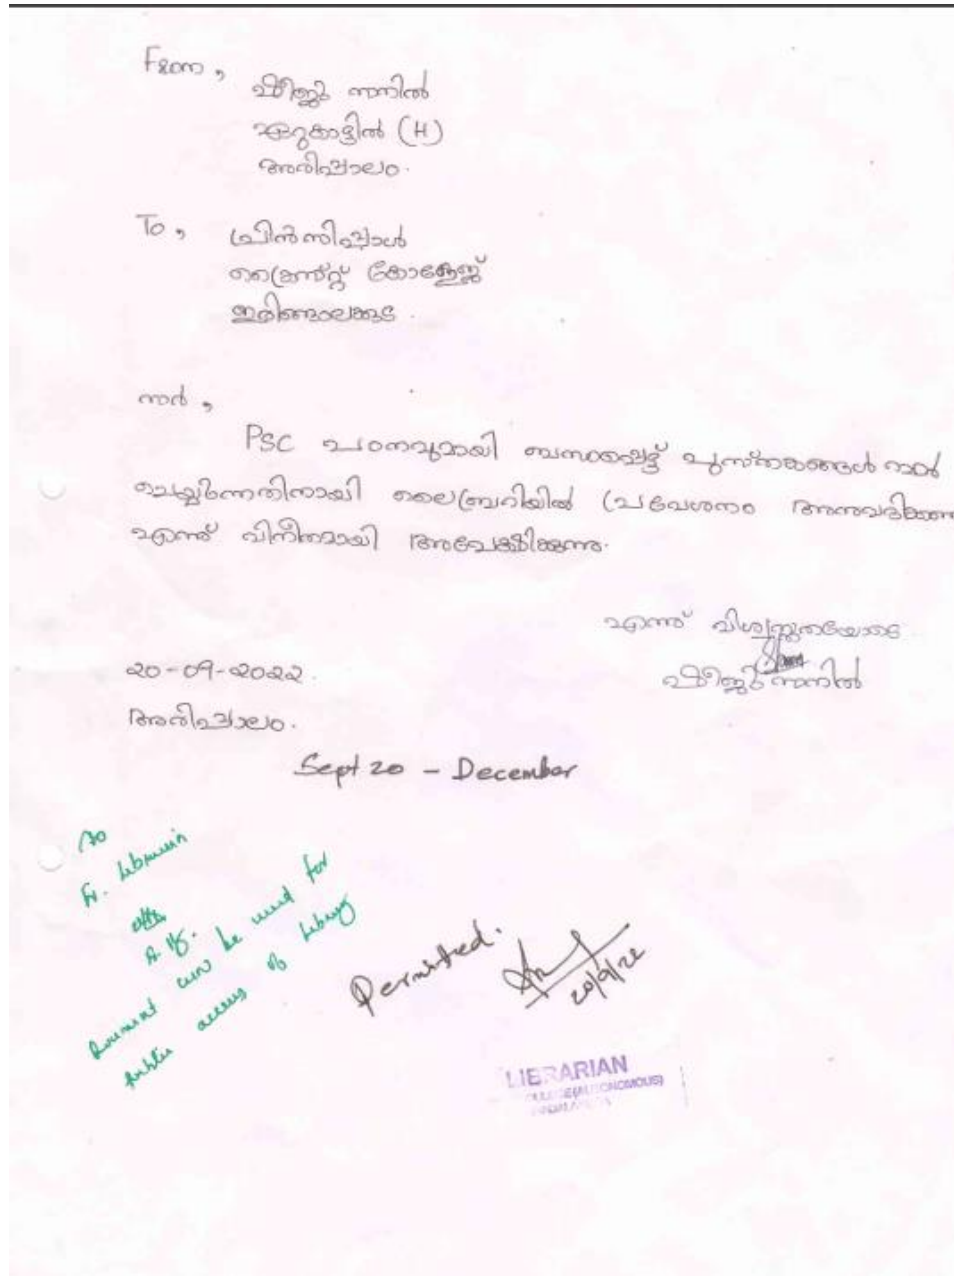 From,
ഷീജു സനിൽ
ഏറുകാട്ടിൽ (H)
അരിപ്പാലം.
To,
പ്രിൻസിപ്പാൾ
ക്രൈസ്റ്റ് കോളേജ്
ഇരിങ്ങാലക്കുട.
സർ,
PSC പഠനവുമായി ബന്ധപ്പെട്ട് പുസ്തകങ്ങൾ റഫർ
ചെയ്യുന്നതിനായി ലൈബ്രറിയിൽ പ്രവേശനം
എന്ന് വിനീതമായി അപേക്ഷിക്കുന്നു.
എന്ന് വിശ്വസ്തതയോടെ
ഷീജു സനിൽ
20-09-2022.
അരിപ്പാലം.
Sept 20 - December
To
Fr.
can be used for
access of library
Permitted.
20/9/22
LIBRARIAN
(AUTONOMOUS)